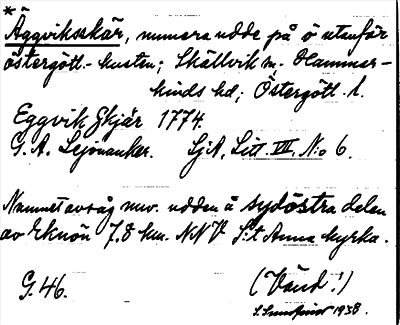 *
Äggviksskär, numera udde på ö utanför
östergötl.-kusten; Skällvik sn. Hammar-
kinds hd; Östergötl. l.
Eggvik Skjär 1774.
G. A. Lejonanker. SjA, Litt. VII, No 6.
Namnet avsåg nuv. udden å sydöstra delen
av Eknön 7,8 km. NNV S:t Anna kyrka.
G. 46. (Vänd!)
1938.